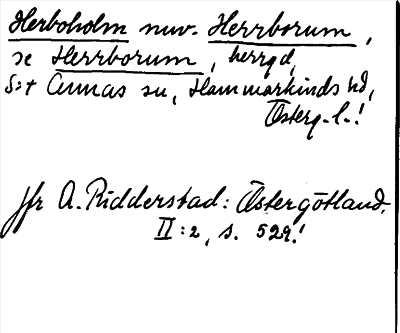 Herboholm nuv. Herrborum,
se Herrborum, herrgd,
S:t Annas sn, Hammarkinds hd,
Österg. l.!
Jfr A. Ridderstad: Östergötland.
II:2, s. 529!